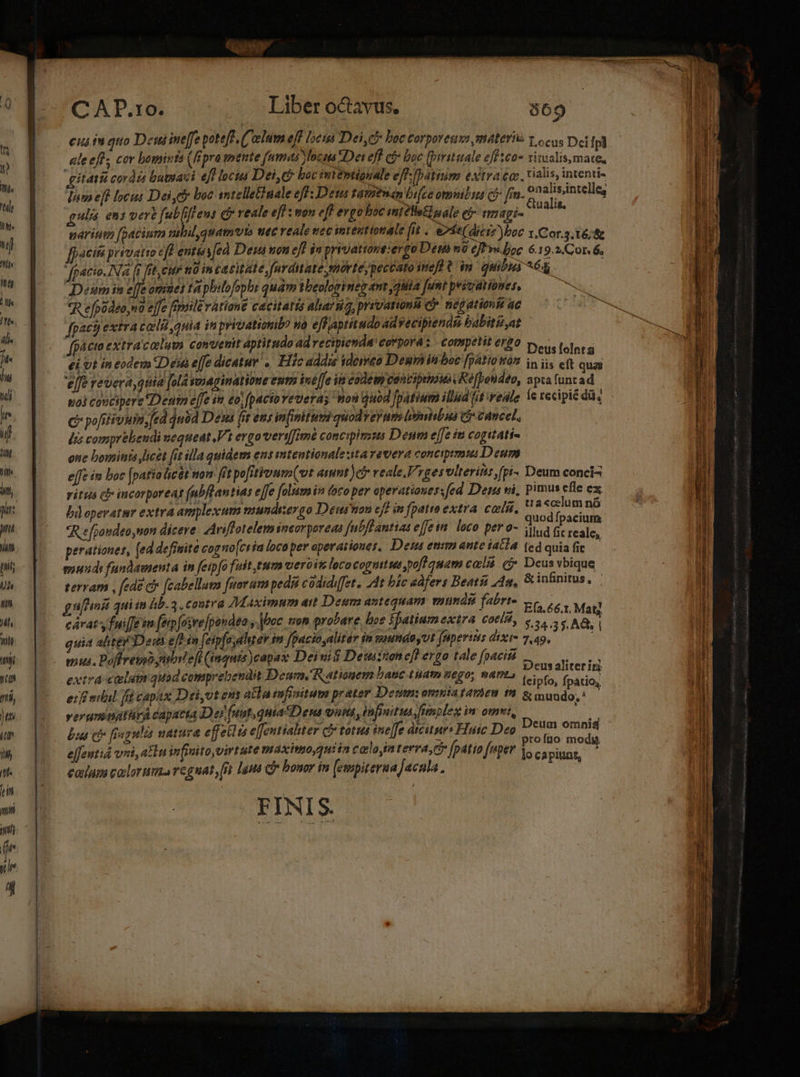 CAP.10. Liber octavus. 369
cui in quo Deus inesse potest. Cælum est locus Dei, & hoc corporeum, materia
ale est; cor hominis (si pra mente sumas) locus Dei est & hoc spirituale est: co-
gitatũ cordis humani est locus Dei, & hoc intentionale est: spatium extra cœ-
lum est locus Dei, & hoc intellectuale est: Deus tamen in hisce omnibus & sin-
gulis ens verè subsistens & reale est: non est ergo hoc intellectuale & imagi-
narium spacium nihil, quamvis nec reale nec intentionale sit. Aste (dicis) hoc
spaciũ privatio est entis, sed Deus non est in privatione: ergo Deus nõ est in hoc
spacio. Nã si sit, cur nõ in cæcitate, surditate, morte, peccato inest? in quibus
Deum in esse omnes tã philosophi quàm theologi negant, quia sunt privationes.
Respõdeo, nõ esse similẽ rationẽ cæcitatis aliarũq, privationũ & negationũ ac
spacij extra cœlũ, quia in privationibº nõ est aptitudo ad recipiendũ habitũ, at
spacio extra cælum convenit aptitudo ad recipienda corpora: competit ergo
ei ut in eodem Deus esse dicatur. Hîc addis ideireo Deum in hoc spatio non
esse revera, quia solâ imaginatione eum inesse in eodem concipimus. Respondeo,
nos concipere Deum esse in eo spacio reverâ; non quòd spatium illud sit reale
& positivum, sed quòd Deus sit ens infinitum quod rerum limitibus & cancel-
lis comprehendi nequeat. Vt ergo verissimè concipimus Deum esse in cogitati-
one hominis, licèt sit illa quidem ens intentionale: ita revera concipimus Deum
esse in hoc spatio licèt non sit positivum (ut aiunt) & reale. Vrges ulterius, spi-
ritus & incorporeas substantias esse solum in loco per operationes: sed Deus ni-
hil operatur extra amplexum mundi: ergo Deus non est in spatio extra cœlũ.
Respondeo, non dicere Aristotelem incorporeas substantias esse in loco per o-
perationes, sed definitè cognosci in loco per operationes. Deus enim ante iacta
mundi fundamenta in seipso fuit, tum verò in loco cognitus, postquam cœlũ &
terram, sedẽ & scabellum suorum pedũ cõdidisset. At hîc adfers Beatũ Au-
gustinũ qui in lib. 3. contra Maximum ait Deum antequam mundũ fabri-
carat, fuisse in seipso, respondeo, hoc non probare hoc spatium extra cœlũ,
quia aliter Deus est in seipso, aliter in spacio, aliter in mundo, ut superius dixi-
mus. Postremò, nihil est (inquis) capax Dei nisi Deus: non est ergo tale spaciũ
extra cœlum quod comprehendit Deum. Rationem hanc tuam nego; nam
etsi nihil sit capax Dei, ut ens actu infinitum præter Deum: omnia tamen in
rerum naturâ capacia Dei sunt, quia Deus unus, infinitus, simplex in omni-
bus & singulis naturæ effectis essentialiter & totus inesse dicitur. Huic Deo
essentiâ uni, actu infinito, virtute maximo, qui in cœlo, in terra, & spatio super
cœlum cœlorum regnat, sit laus & honor in sempiterna sæcula.
FINIS.
Locus Dei spi-
ritualis, mate-
rialis, intenti-
onalis, intelle-
ctualis.
1. Cor. 3. 16. &
6. 19. 2. Cor. 6.
16.
Deus solus
in iis est quæ
apta sunt ad
se recipiẽdũ.
Deum conci-
pimus esse ex
tra cœlum nõ
quod spacium
illud sit reale,
sed quia sit
Deus ubique
& infinitus.
Esa. 66. 1. Mat.
5. 34. 35. Act.
7. 49.
Deus aliter in
seipso, spatio,
& mundo.
Deum omnia
pro suo modu
lo capiunt.